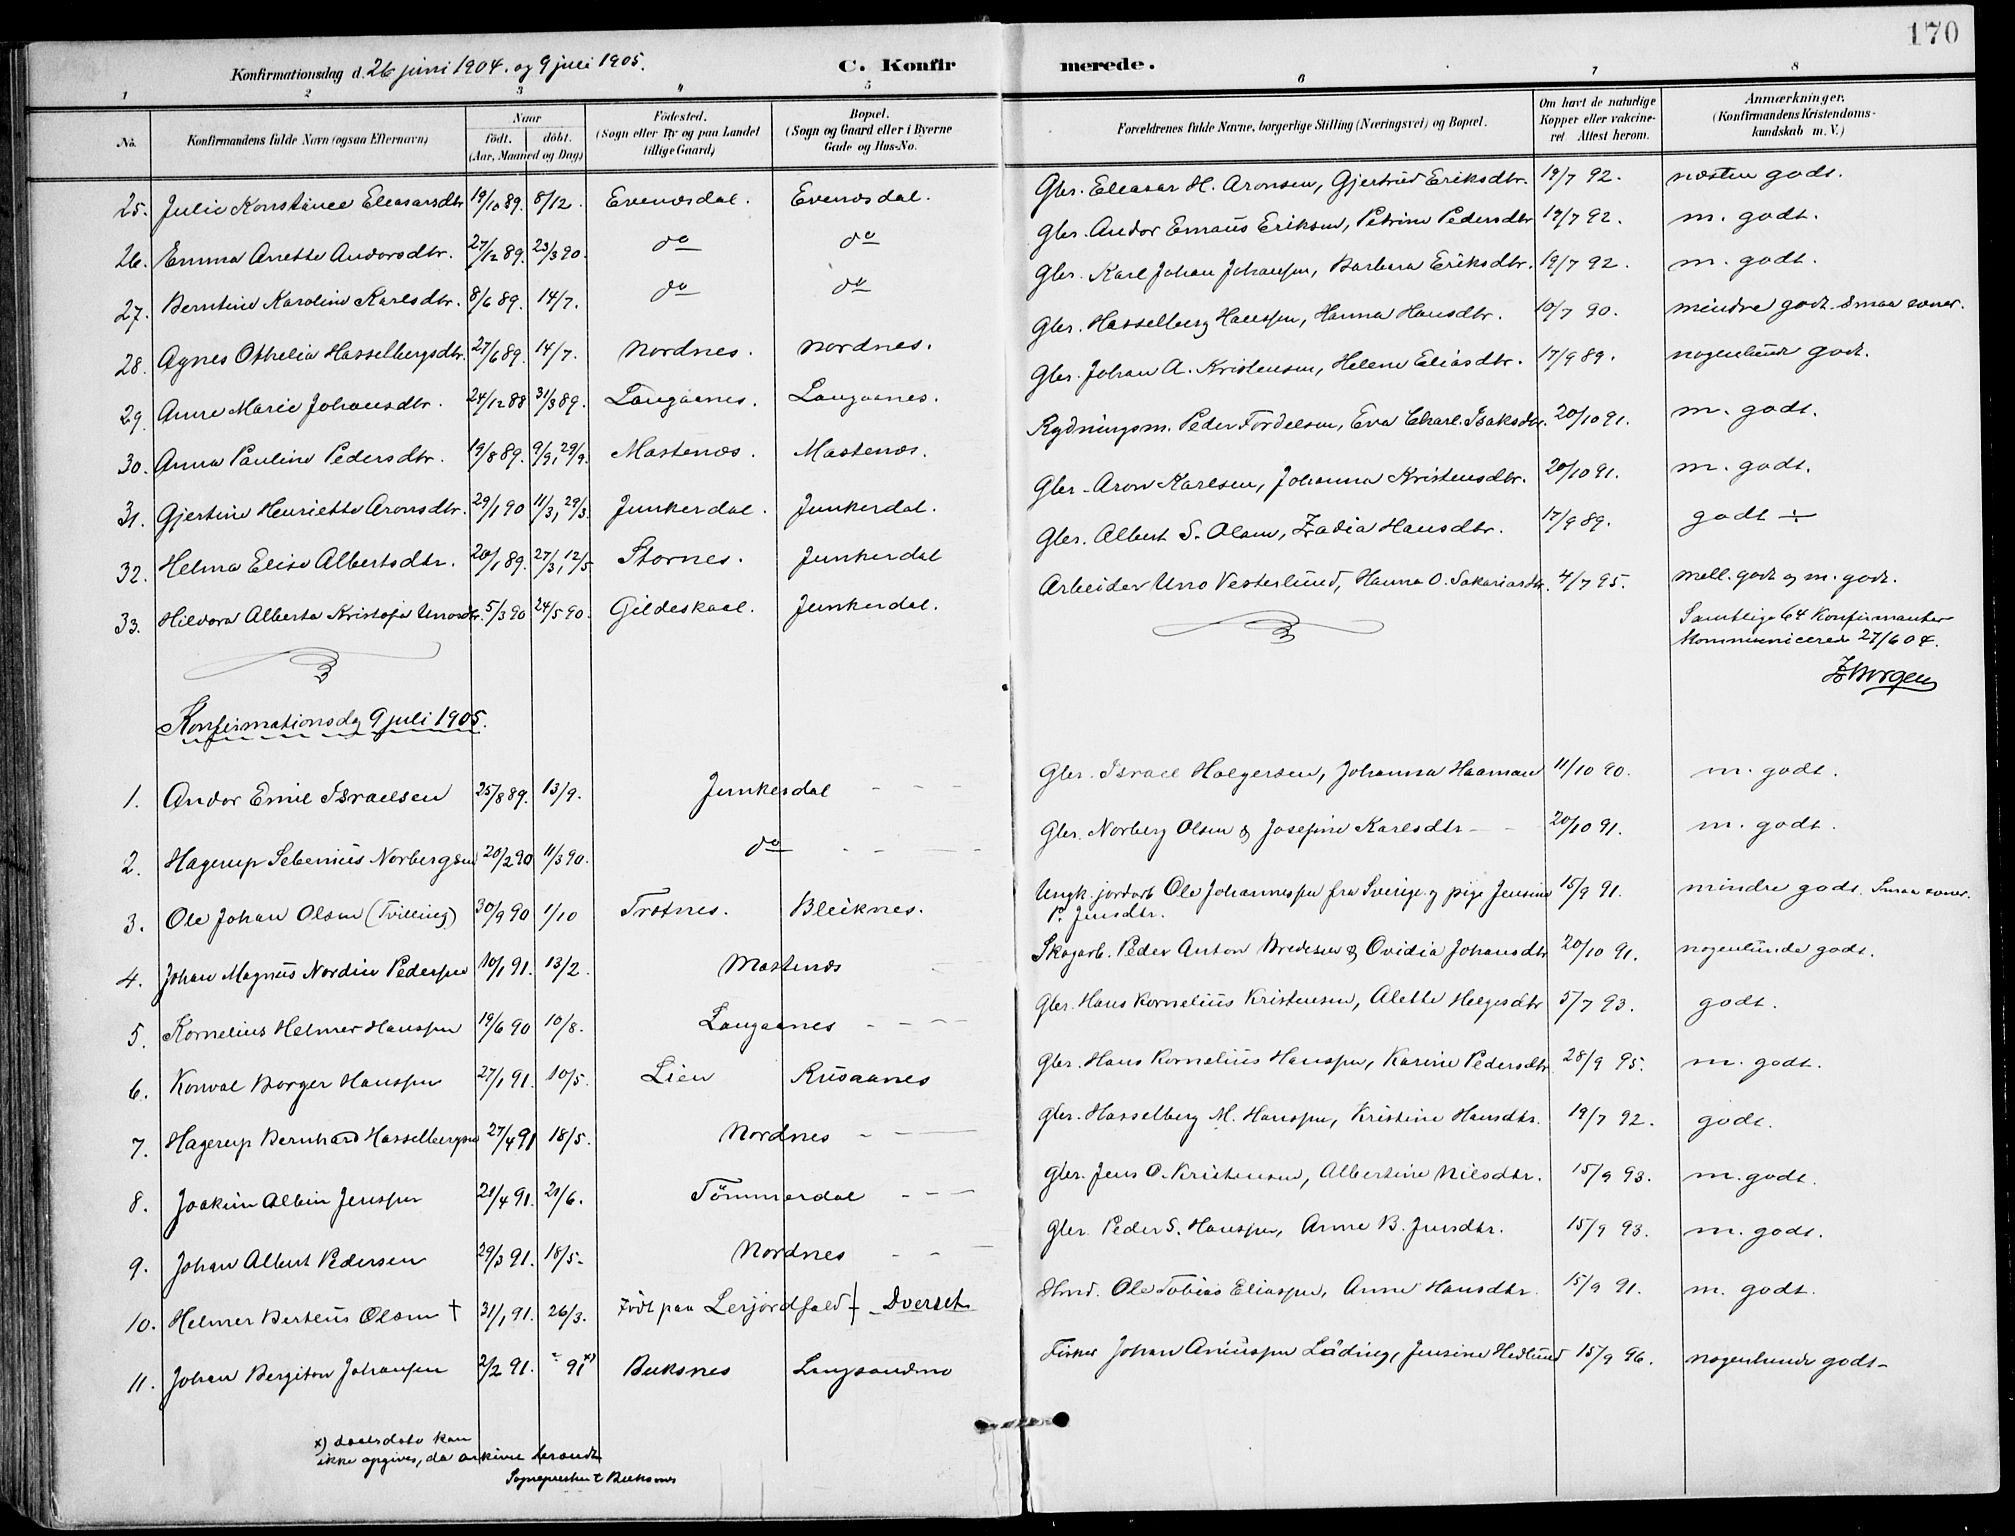 170
Konfirmationsdag d. 26 juni 1904. og 9 juli 1905.
C. Konfirmerede.
1 2 3 4 5 6 7 8
No. Konfirmandens fulde Navn (ogsaa Efternavn) Naar født. døbt. (Aar, Maaned og Dag) Fødested. (Sogn eller By og paa Landet tillige Gaard) Bopæl. (Sogn og Gaard eller i Byerne Gade og Hus-No. Forældrenes fulde Navne, borgerlige Stilling (Næringsvei) og Bopæl. Om havt de naturlige Kopper eller vakcineret Attest herom. Anmærkninger. (Konfirmandens Kristendomskundskab m. V.)
25. Julie Konstance Eleasarsdtr 19/10 89. 8/12. Evenesdal. Evenesdal. Gbr. Eleasar H. Aronsen, Gjertrud Eriksdtr. 19/7 92. næsten godt.
26. Emma Anette Andorsdtr. 27/12 89. 23/3 90. do do Gbr. Andor Emaus Eriksen, Petrine Pedersdtr 19/7 92. m. godt.
27. Berntine Karoline Karlsdtr. 8/6 89. 14/7. do do Gbr. Karl Johan Johansen, Barbara Eriksdtr. 19/7 92. m. godt.
28. Agnes Othelia Hasselbergsdtr. 27/6 89. 14/7. Nordnes. Nordnes. Gbr. Hasselberg Hansen, Hanna Hansdtr. 10/7 90. mindre godt. Smaa evner.
29. Anne Marie Johansdtr. 24/12 88 31/3 89. Langaanes. Langaanes. Gbr. Johan A. Kristensen, Helene Eliasdtr. 17/9 89. nogenlunde godt.
30. Anna Pauline Pedersdtr. 19/8 89. 9/9, 29/9. Mastenes. Mastenes. Rydningsm. Peder Fordelsen, Eva Charl. Isaksdtr. 20/10 91. m. godt.
31. Gjertine Henriette Aronsdtr. 29/1 90 11/3, 29/3. Junkerdal. Junkerdal. Gbr. Aron Karlsen, Johanna Kristensdtr. 20/10 91. m. godt.
32. Helma Elise Albertsdtr. 20/1 89. 27/3, 12/5 Stornes. Junkerdal Gbr. Albert S. Olsen, Zadia Hansdtr. 17/9 89. godt ÷
33. Hildora Alberta Kristofa Unosdtr. 5/3 90 24/5 90. Gildeskaal. Junkerdal. Arbeider Uno Vesterlund, Hanna O. Sakariasdtr. 4/7 95. mell. godt og m. godt.
Samtlige 64 Konfirmanter
kommunicerede 27/6 04.
Borgen
Konfirmationsdag 9 juli 1905.
1. Andor Emil Israelsen 25/8 89. 13/9. Junkerdal Gbr. Israel Holgersen, Johanna Haaman 11/10 90. m. godt.
2. Hagerup Sebenius Norbergsen 20/2 90 11/3 90. do Gbr. Norberg Olsen & Josefine Karlsdtr 20/10 91. m. godt.
3. Ole Johan Olsen (Tvilling) 30/9 90 1/10 Trotnes. Bleiknes. Ungk. jordarb Ole Johannessen fra Sverige og pige Jensine P. Jensdtr. 15/9 91. mindre godt. Smaa evner.
4. Johan Magnus Nordin Pedersen 10/1 91. 13/2. Mastenes Skogarb. Peder Anton Bredesen & Ovidia Johansdtr 20/10 91. nogenlunde godt.
5. Kornelius Helmer Hanssen 19/6 90 10/8. Langaanes Gbr. Hans Kornelius Kristensen, Alette Helgesdtr 5/7 93. godt.
6. Konval Borger Hanssen 27/1 91. 10/5. Lien Rusaanes Gbr. Hans Kornelius Hanssen, Karine Pedersdtr 28/9 95. m. godt.
7. Hagerup Bernhard Hasselbergsen 27/4 91 18/5. Nordnes Gbr. Hasselberg M. Hanssen, Kristine Hansdtr. 19/7 92. godt.
8. Joakim Albin Jenssen 21/4 91. 21/6. Tømmerdal Gbr. Jens O. Kristensen, Albertine Nilsdtr. 15/9 93. m. godt.
9. Johan Albert Pedersen 29/3 91. 18/5. Nordnes Gbr. Peder S. Hanssen, Anne B. Jensdtr. 15/9 93. m. godt.
10. Helmer Berteus Olsen † 31/1 91. 26/3. Født paa Lerjordfald Dverset Hmd. Ole Tobias Eliassen, Anne Hansdtr. 15/9 91. m. godt.
11. Johan Bergiton Johansen 2/2 91. - 91 x) Buksnes Langsandmo Fisker Johan Ariussen Läding, Jensine Hedlund 15/9 96. nogenlunde godt-
x) daabsdato kan
ikke opgives, da arkivet brændt
Sognepresten t Buksnes